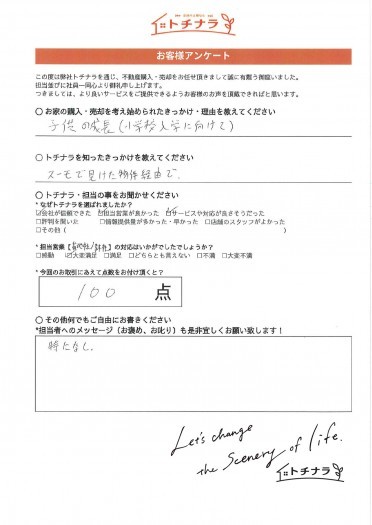 トチナラ
お客様アンケート
この度は弊社トチナラを通じ、不動産購入・売却をお任せ頂きまして誠に有難う御座いました。
担当並びに社員一同心より御礼申し上げます。
つきましては、より良いサービスをご提供できるようお客様のお声を頂戴できればと思います。
○ お家の購入・売却を考え始められたきっかけ・理由を教えてください
子供の成長(小学校入学に向けて)
○ トチナラを知ったきっかけを教えてください
スーモで見けた物件経由で
○ トチナラ・担当の事をお聞かせください
* なぜトチナラを選ばれましたか?
☑会社が信頼できた ☑担当営業が良かった ☑サービスや対応が良さそうだった
□評判を聞いた □情報提供量が多かった・早かった □店舗のスタッフがよかった
□その他(
* 担当営業【 】の対応はいかがでしたでしょうか?
□感動 ☑大変満足 □満足 □どちらとも言えない □不満 □大変不満
* 今回のお取引にあえて点数をお付け頂くと?
100 点
○ その他何でもご自由にお書きください
*担当者へのメッセージ(お褒め、お叱り)も是非宜しくお願い致します!
特になし.
Let's change
the Scenery of life.
トチナラ